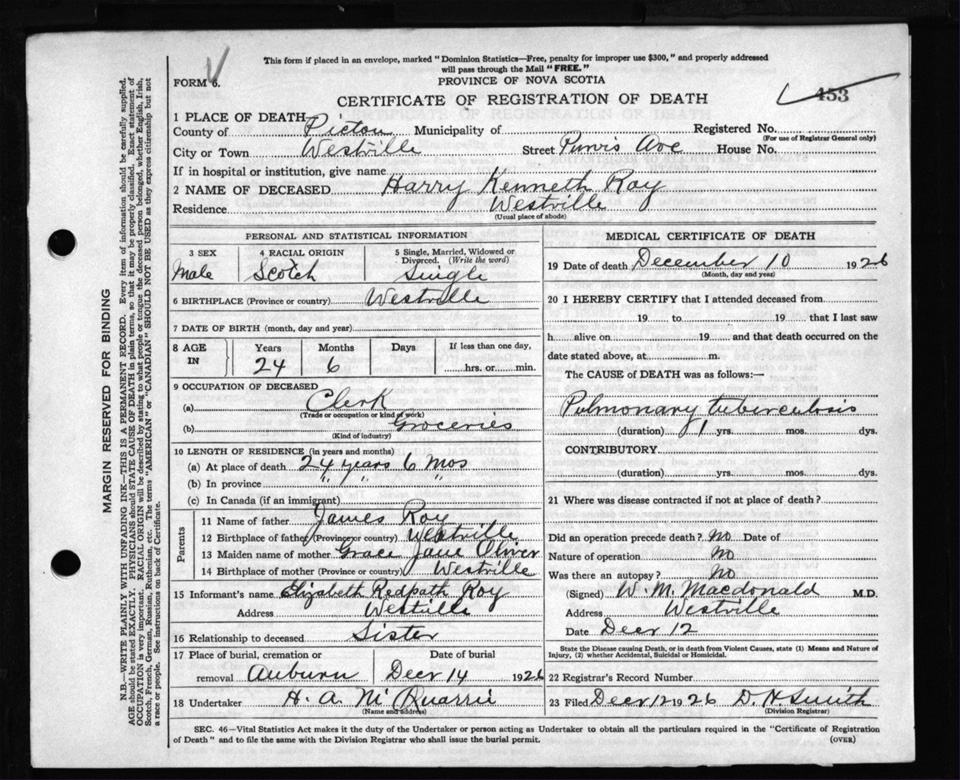 This form if placed in an envelope, marked "Dominion Statistics—Free, penalty for improper use $300," and properly addressed
will pass through the Mail "FREE."
FORM 6.
PROVINCE OF NOVA SCOTIA
453
CERTIFICATE OF REGISTRATION OF DEATH
1 PLACE OF DEATH
County of Pictou Municipality of Registered No.
(For use of Registrar General only)
City or Town Westville Street Purvis Ave House No.
If in hospital or institution, give name
2 NAME OF DECEASED Harry Kenneth Roy
Residence Westville
(Usual place of abode)
PERSONAL AND STATISTICAL INFORMATION
3 SEX 4 RACIAL ORIGIN 5 Single, Married, Widowed or Divorced. (Write the word)
Male Scotch Single
6 BIRTHPLACE (Province or country) Westville
7 DATE OF BIRTH (month, day and year)
8 AGE IN Years Months Days If less than one day,
24 6 hrs. or min.
9 OCCUPATION OF DECEASED
(a) Clerk
(Trade or occupation or kind of work)
(b) Groceries
(Kind of industry)
10 LENGTH OF RESIDENCE (in years and months)
(a) At place of death 24 years 6 mos
(b) In province " " "
(c) In Canada (if an immigrant)
Parents
11 Name of father James Roy
12 Birthplace of father (Province or country) Westville
13 Maiden name of mother Grace Jane Oliver
14 Birthplace of mother (Province or country) Westville
15 Informant's name Elizabeth Redpath Roy
Address Westville
16 Relationship to deceased Sister
17 Place of burial, cremation or removal Auburn Date of burial Decr 14 1926
18 Undertaker H. A. McQuarrie
(Name and address)
MEDICAL CERTIFICATE OF DEATH
19 Date of death December 10 1926
(Month, day and year)
20 I HEREBY CERTIFY that I attended deceased from
19 to 19 that I last saw
h alive on 19 and that death occurred on the
date stated above, at m.
The CAUSE of DEATH was as follows:—
Pulmonary tuberculosis
(duration) 1 yrs. mos. dys.
CONTRIBUTORY
(duration) yrs. mos. dys.
21 Where was disease contracted if not at place of death?
Did an operation precede death? No Date of
Nature of operation No
Was there an autopsy? No
(Signed) W. M. Macdonald M.D.
Address Westville
Date Decr 12
State the Disease causing Death, or in death from Violent Causes, state (1) Means and Nature of
Injury, (2) whether Accidental, Suicidal or Homicidal.
22 Registrar's Record Number
23 Filed Decr 12 1926 D. H. Smith
(Division Registrar)
SEC. 46—Vital Statistics Act makes it the duty of the Undertaker or person acting as Undertaker to obtain all the particulars required in the "Certificate of Registration
of Death" and to file the same with the Division Registrar who shall issue the burial permit.
(OVER)
MARGIN RESERVED FOR BINDING
N.B.—WRITE PLAINLY WITH UNFADING INK—THIS IS A PERMANENT RECORD. Every item of information should be carefully supplied.
AGE should be stated EXACTLY. PHYSICIANS should STATE CAUSE OF DEATH in plain terms, so that it may be properly classified. Exact statement of
OCCUPATION is very important. RACIAL ORIGIN will be described by stating to what people or tongue the deceased person belonged, whether English, Irish,
Scotch, French, German, Russian, Ruthenian, etc. The terms "AMERICAN" or "CANADIAN" SHOULD NOT BE USED as they express citizenship but not
a race or people. See instructions on back of Certificate.